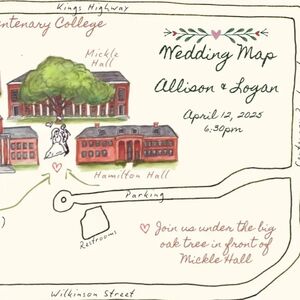 Kings Highway
entenary College
Mickle
Hall
Wedding Map
Allison & Logan
April 12, 2025
6:30pm
Hamilton Hall
Parking
Restrooms
Join us under the big
oak tree in front of
Mickle Hall
Wilkinson Street